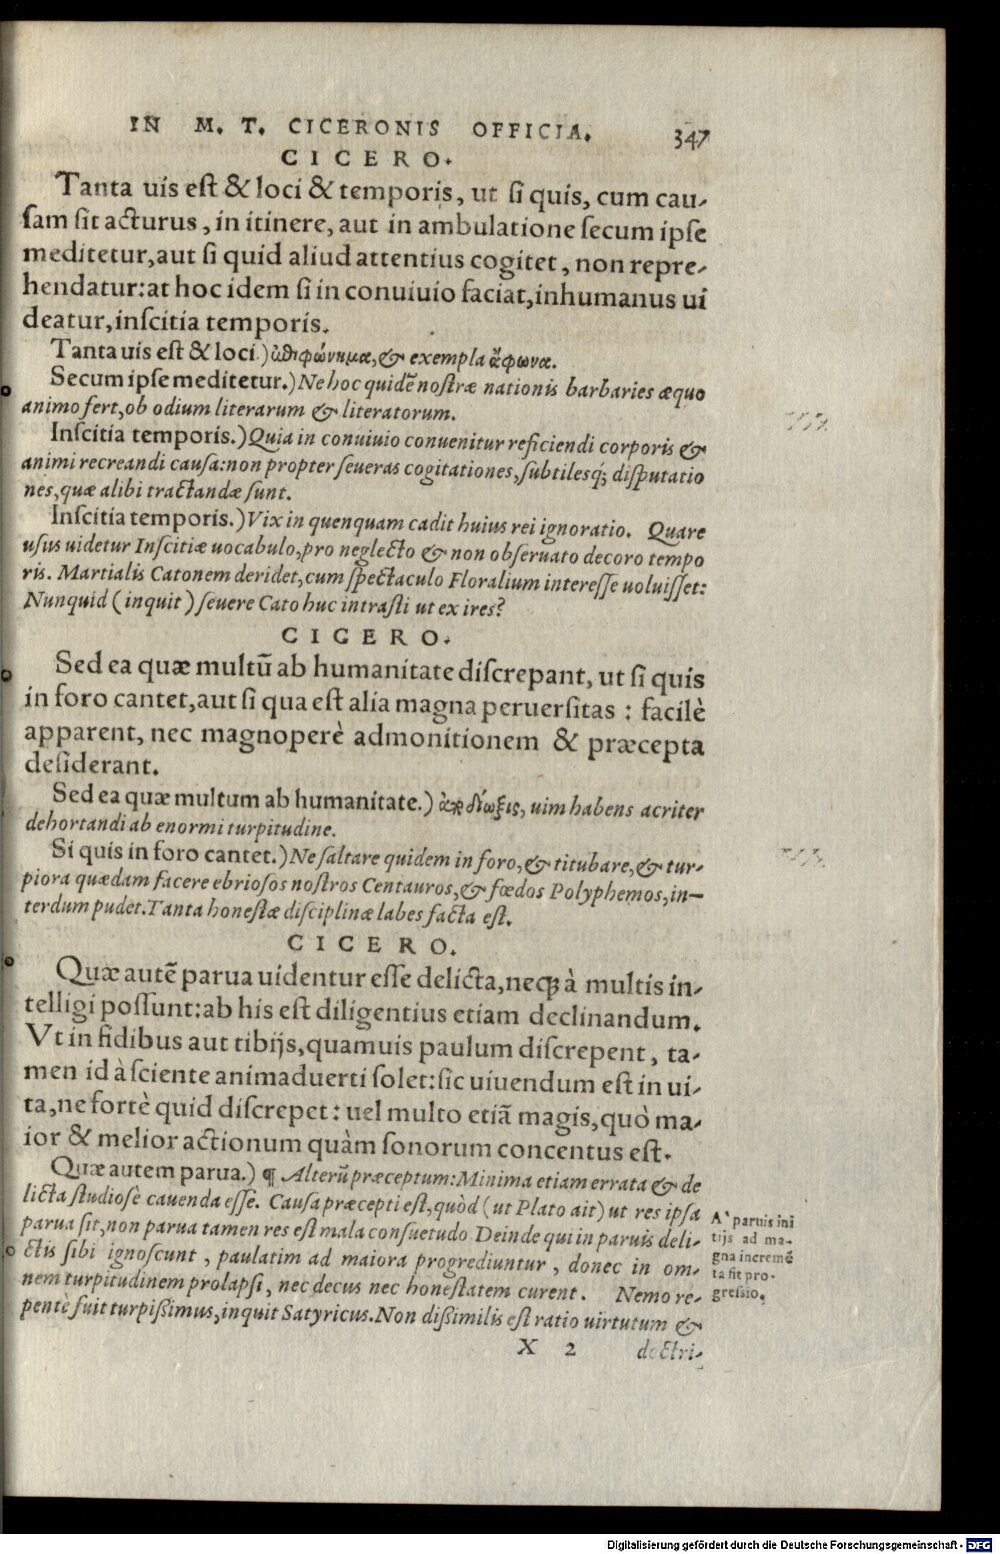 IN M. T. CICERONIS OFFICIA. 347
CICERO.
Tanta uis eſt & loci & temporis, ut ſi quis, cum cau-
ſam ſit acturus, in itinere, aut in ambulatione ſecum ipſe
meditetur, aut ſi quid aliud attentius cogitet, non repre-
hendatur: at hoc idem ſi in conuiuio faciat, inhumanus ui
deatur, inſcitia temporis.
Tanta uis eſt & loci.) ἐπιφώνημα, & exempla
Secum ipſe meditetur.) Ne hoc quidē noſtræ nationis barbaries æquo
animo fert, ob odium literarum & literatorum.
Inſcitia temporis.) Quia in conuiuio conuenitur reficiendi corporis &
animi recreandi cauſa: non propter ſeueras cogitationes, ſubtilesq́; diſputatio
nes, quæ alibi tractandæ ſunt.
Inſcitia temporis.) Vix in quenquam cadit huius rei ignoratio. Quare
uſus uidetur Inſcitiæ uocabulo, pro neglecto & non obſeruato decoro tempo
ris. Martialis Catonem deridet, cum ſpectaculo Floralium intereſſe uoluiſſet:
Nunquid (inquit) ſeuere Cato huc intraſti ut ex ires?
CICERO.
Sed ea quæ multū ab humanitate diſcrepant, ut ſi quis
in foro cantet, aut ſi qua eſt alia magna peruerſitas: facilè
apparent, nec magnoperè admonitionem & præcepta
deſiderant.
Sed ea quæ multum ab humanitate.) uim habens acriter
dehortandi ab enormi turpitudine.
Si quis in foro cantet.) Ne ſaltare quidem in foro, & titubare, & tur-
piora quædam facere ebrioſos noſtros Centauros, & fœdos Polyphemos, in-
terdum pudet. Tanta honeſtæ diſciplinæ labes facta eſt.
CICERO.
Quæ autē parua uidentur eſſe delicta, neq; à multis in-
telligi poſſunt: ab his eſt diligentius etiam declinandum.
Vt in fidibus aut tibijs, quamuis paulum diſcrepent, ta-
men id à ſciente animaduerti ſolet: ſic uiuendum eſt in ui-
ta, ne fortè quid diſcrepet: uel multo etiā magis, quò ma-
ior & melior actionum quàm ſonorum concentus eſt.
Quæ autem parua.) ¶ Alterū præceptum: Minima etiam errata & de
licta ſtudioſè cauenda eſſe. Cauſa præcepti eſt, quòd (ut Plato ait) ut res ipſa
parua ſit, non parua tamen res eſt mala conſuetudo Deinde qui in paruis deli-
ctis ſibi ignoſcunt, paulatim ad maiora progrediuntur, donec in om-
nem turpitudinem prolapſi, nec decus nec honeſtatem curent. Nemo re-
pentè fuit turpißimus, inquit Satyricus. Non dißimilis eſt ratio uirtutum &
A' paruis ini
tijs ad ma-
gna incremē
ta fit pro-
greſsio.
X 2 doctri-
Digitalisierung gefördert durch die Deutsche Forschungsgemeinschaft - DFG